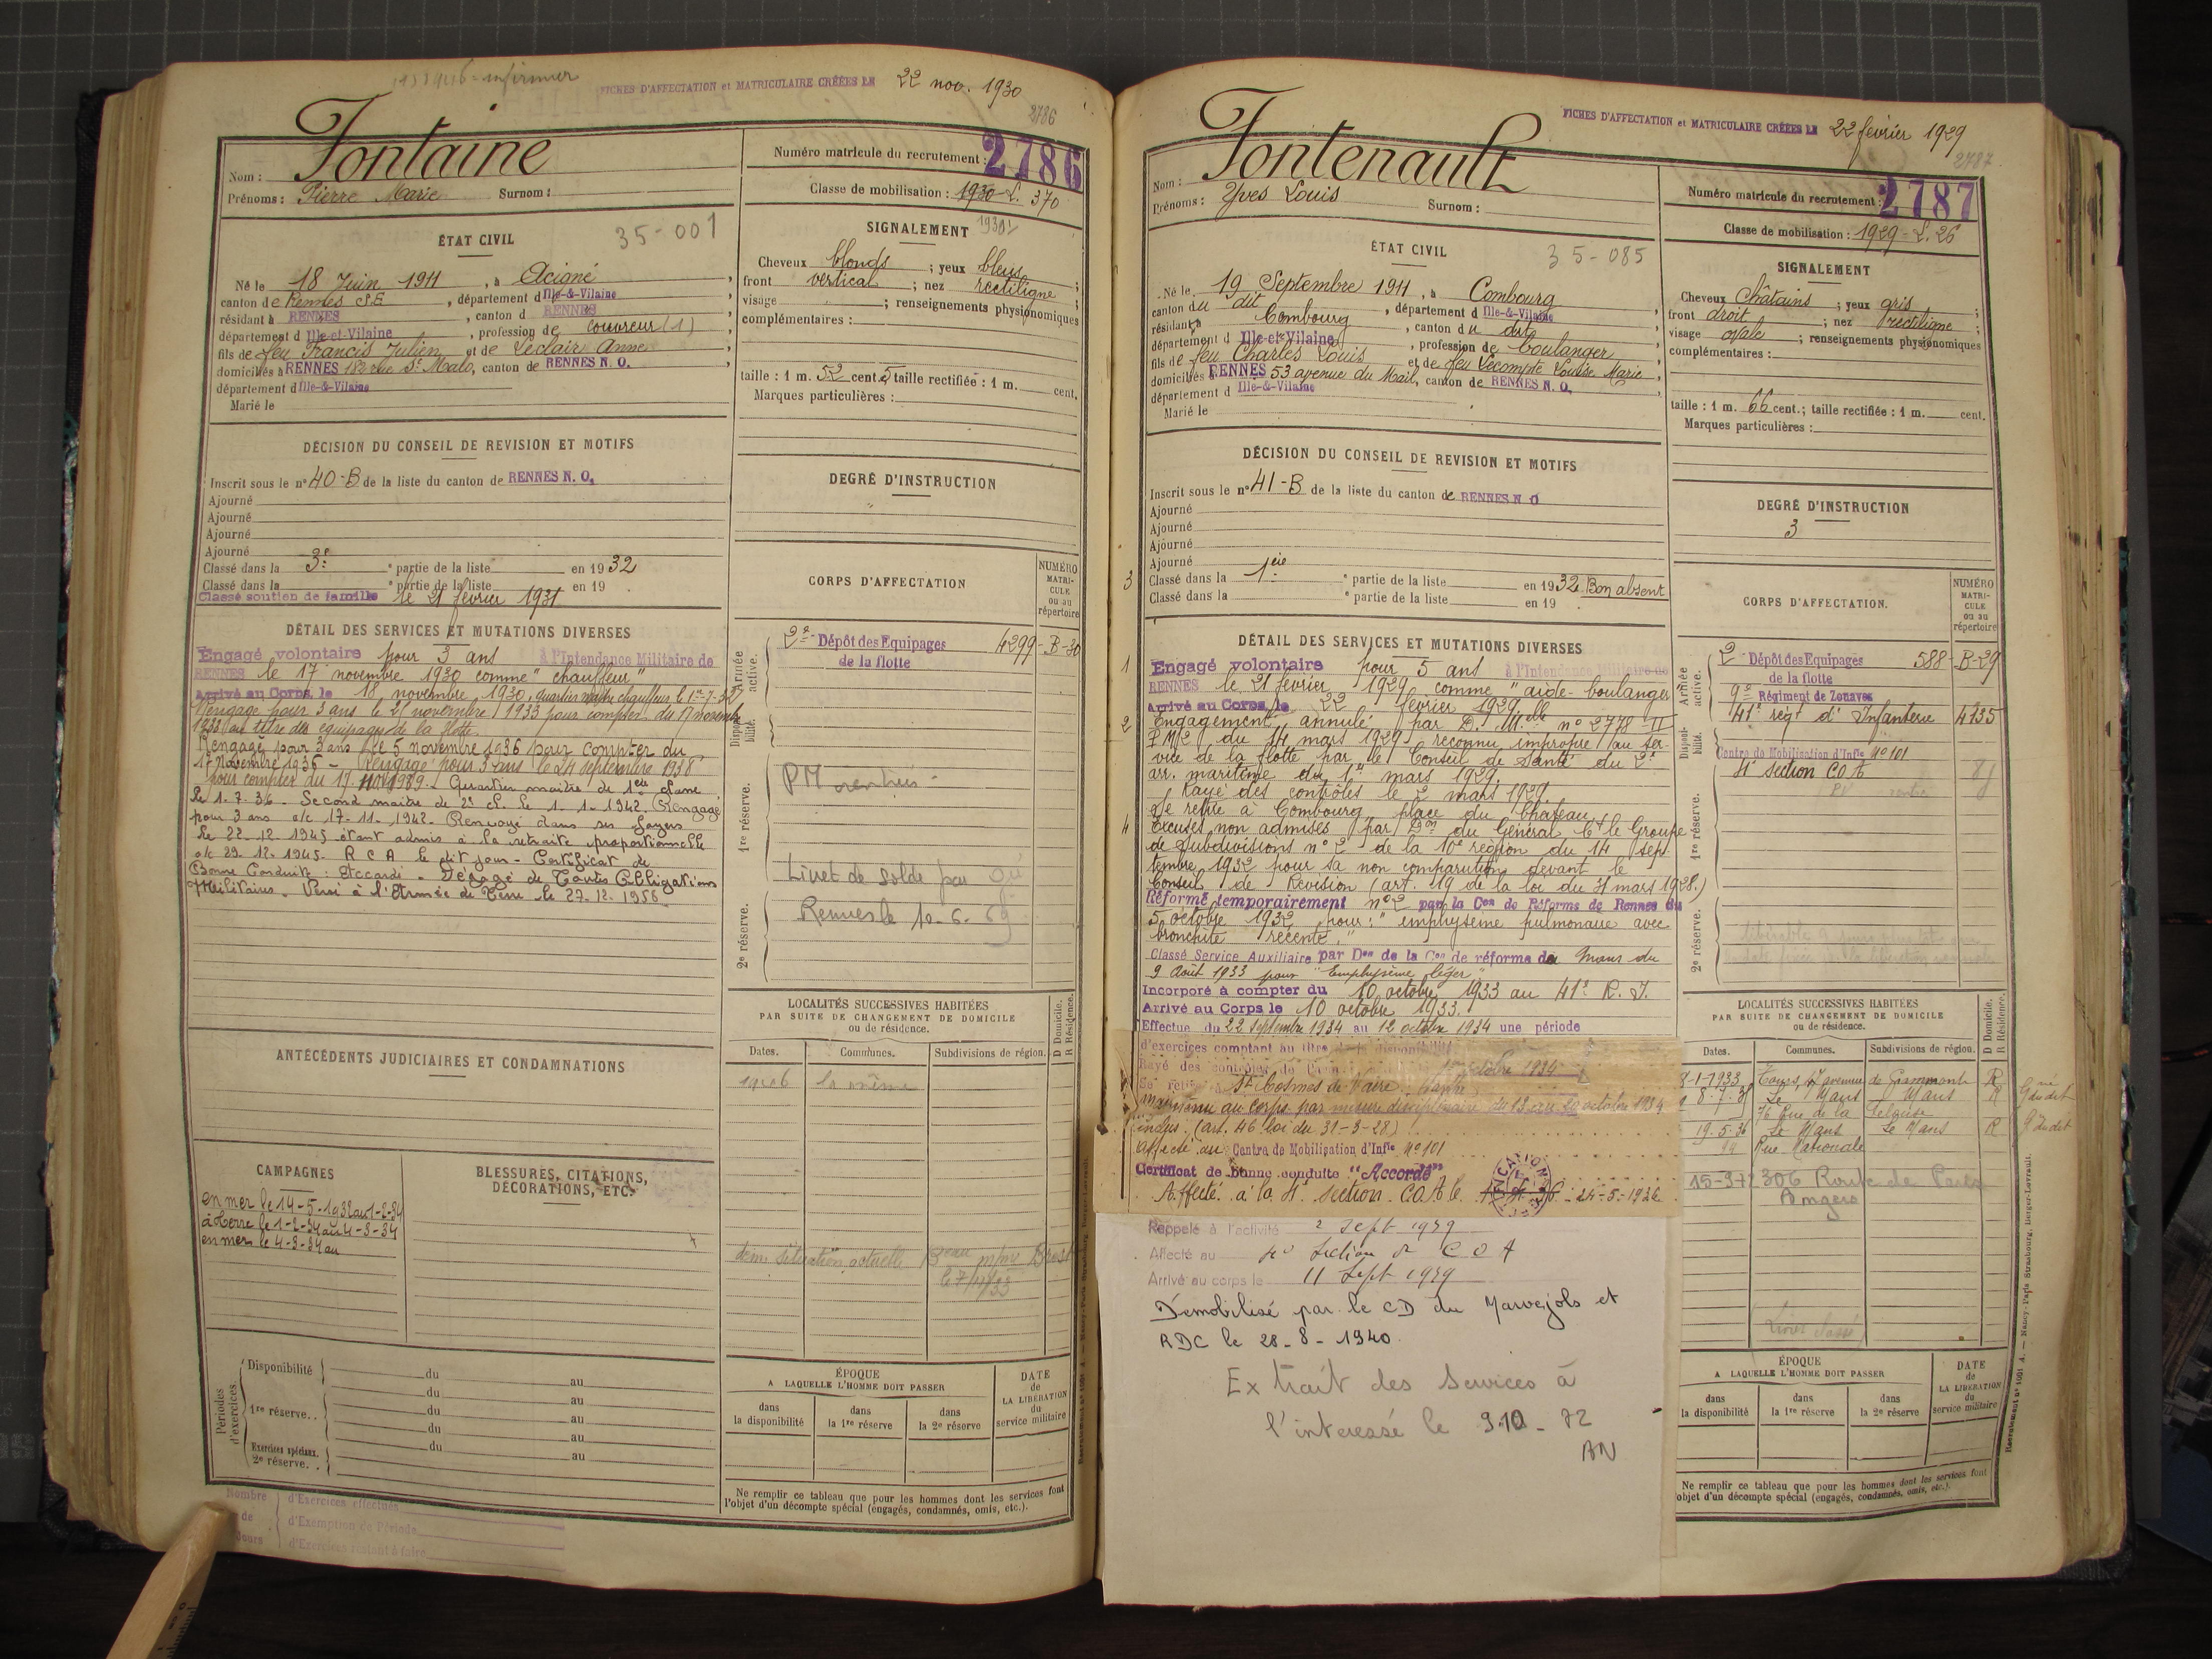 FICHES D'AFFECTATION et MATRICULAIRE CRÉÉES LE 22 nov. 1930
2786
Nom : Fontaine
Prénoms : Pierre Marie Surnom :
Numéro matricule du recrutement : 2786
Classe de mobilisation : 1930 - L. 370
ÉTAT CIVIL
35-001
Né le 18 Juin 1911, à Acigné,
canton de Rennes S.E., département d Ille-&-Vilaine
résidant à RENNES, canton d RENNES
département d Ille-et-Vilaine, profession de couvreur (1)
fils de feu Francis Julien et de Leclair Anne
domiciliés à RENNES 183 rue St Malo, canton de RENNES N. O.
département d Ille-&-Vilaine
Marié le
SIGNALEMENT
Cheveux blonds ; yeux bleus
front vertical ; nez rectiligne
visage ; renseignements physionomiques
complémentaires :
taille : 1 m. 52 cent. 5 taille rectifiée : 1 m. cent.
Marques particulières :
DÉCISION DU CONSEIL DE REVISION ET MOTIFS
Inscrit sous le n° 40-B de la liste du canton de RENNES N. O.
Ajourné
Ajourné
Ajourné
Ajourné
Classé dans la 3e partie de la liste en 1932
Classé dans la partie de la liste en 19
Classé soutien de famille le 21 février 1931
DEGRÉ D'INSTRUCTION
DÉTAIL DES SERVICES ET MUTATIONS DIVERSES
Engagé volontaire pour 3 ans à l'Intendance Militaire de
RENNES le 17 novembre 1930 comme "chauffeur"
Arrivé au Corps le 18 novembre 1930, quartier maître chauffeur le 1er-7-32
Rengagé pour 3 ans le 21 novembre 1933 pour compter du 17 novembre
1933 au titre des équipages de la flotte.
Rengagé pour 3 ans le 5 novembre 1936 pour compter du
17 Novembre 1936 - Rengagé pour 3 ans le 24 septembre 1938
pour compter du 17 nov 1939. Quartier maître de 1ère classe
le 1.7.36 - Second maître de 2e cl. le 1-1-1942. Rengagé
pour 3 ans a/c 17-11-1942 - Renvoyé dans ses foyers
le 22-12 1945 étant admis à la retraite proportionnelle
a/c 29-12-1945. R C A le dit jour - Certificat de
Bonne Conduite : Accordé - Dégagé de Toutes Obligations
Militaires - Versé à l'Armée de Terre le 27.12.1956
CORPS D'AFFECTATION
NUMÉRO MATRICULE ou au répertoire
Armée active.
2e Dépôt des Equipages 4299-B-30
de la flotte
Disponibilité.
1re réserve.
Livret de solde
2e réserve.
Rennes le 10-6-69
ANTÉCÉDENTS JUDICIAIRES ET CONDAMNATIONS
LOCALITÉS SUCCESSIVES HABITÉES
PAR SUITE DE CHANGEMENT DE DOMICILE
ou de résidence.
D Domicile.
R Résidence.
Dates. Communes. Subdivisions de région.
CAMPAGNES
en mer le 14-5-1932 au 1-2-34
à terre le 1-2-34 au 4-3-34
en mer le 4-3-34 au
BLESSURES, CITATIONS,
DÉCORATIONS, ETC.
Périodes d'exercices.
Disponibilité du au
1re réserve. . du au
du au
du au
Exercices spéciaux. du au
2e réserve. .
ÉPOQUE
A LAQUELLE L'HOMME DOIT PASSER
dans la disponibilité dans la 1re réserve dans la 2e réserve
DATE de LA LIBÉRATION du service militaire
Ne remplir ce tableau que pour les hommes dont les services font
l'objet d'un décompte spécial (engagés, condamnés, omis, etc.).
Nombre de Jours
d'Exercices effectués
d'Exemption de Période
d'Exercices restant à faire
FICHES D'AFFECTATION et MATRICULAIRE CRÉÉES LE 22 février 1929
2787
Nom : Fontenault
Prénoms : Yves Louis Surnom :
Numéro matricule du recrutement : 2787
Classe de mobilisation : 1929 - L. 26
ÉTAT CIVIL
35-085
Né le 19 Septembre 1911, à Combourg
canton du dit, département d Ille-&-Vilaine
résidant à Combourg, canton du dit
département d Ille-et-Vilaine, profession de boulanger
fils de feu Charles Louis et de feu Lecompte Louise Marie
domiciliés à RENNES 53 avenue du Mail, canton de RENNES N. O.
département d Ille-&-Vilaine
Marié le
SIGNALEMENT
Cheveux Châtains ; yeux gris
front droit ; nez rectiligne
visage ovale ; renseignements physionomiques
complémentaires :
taille : 1 m. 66 cent.; taille rectifiée : 1 m. cent.
Marques particulières :
DÉCISION DU CONSEIL DE REVISION ET MOTIFS
Inscrit sous le n° 41-B de la liste du canton de RENNES N. O
Ajourné
Ajourné
Ajourné
Ajourné
3 Classé dans la 1ère partie de la liste en 1932 Bon absent
Classé dans la partie de la liste en 19
DEGRÉ D'INSTRUCTION
3
DÉTAIL DES SERVICES ET MUTATIONS DIVERSES
1 Engagé volontaire pour 5 ans à l'Intendance Militaire de
RENNES le 21 février 1929 comme "aide-boulanger"
Arrivé au Corps le 22 février 1929.
2 Engagement annulé par D. Mlle n° 2778-II
P.M/2 du 14 mars 1929 reconnu impropre au ser-
vice de la flotte par le Conseil de Santé du 2e
arr. maritime du 1er mars 1929.
Rayé des contrôles le 2 mars 1929.
Se retire à Combourg, place du Château.
4 Excuses non admises par Don du Général Ct le Groupe
de Subdivisions n° 2 de la 10e région du 14 sep-
tembre 1932 pour sa non comparution devant le
Conseil de Revision (art. 19 de la loi du 31 mars 1928.)
Réformé temporairement n° 2 par la Con de Réforme de Rennes du
5 octobre 1932 pour : "emphysème pulmonaire avec
bronchite récente."
Classé Service Auxiliaire par Don de la Con de réforme du Mans du
9 Août 1933 pour "Emphysème léger"
Incorporé à compter du 10 octobre 1933 au 41e R. I.
Arrivé au Corps le 10 octobre 1933.
Effectue du 22 septembre 1934 au 12 octobre 1934 une période
d'exercices comptant au titre de la disponibilité
Rayé des contrôles octobre 1934
Se retire St Cosmes de Vaire
maintenu au corps par mesure disciplinaire du 13 au 20 octobre 1934
inclus. (art. 46 loi du 31-3-28)
affecté au Centre de Mobilisation d'Infie n° 101
Certificat de bonne conduite "Accordé"
Affecté à la 4e section COA le 24-5-1936
Rappelé à l'activité 2 sept 1939
Affecté au 4e Section de C O A
Arrivé au corps le 11 Sept 1939
Démobilisé par le CD du Marvejols et
RDC le 28-8-1940.
Extrait des Services à
l'interessé le 9.10-72
AN
CORPS D'AFFECTATION.
NUMÉRO MATRICULE ou au répertoire
Armée active.
2 Dépôt des Equipages 588-B-29
de la flotte
9e Régiment de Zouaves
41e régt d'Infanterie 4735
Disponibilité.
Centre de Mobilisation d'Infie n° 101
4e section COA
1re réserve.
2e réserve.
LOCALITÉS SUCCESSIVES HABITÉES
PAR SUITE DE CHANGEMENT DE DOMICILE
ou de résidence.
D Domicile.
R Résidence.
Dates. Communes. Subdivisions de région.
8-1-1933 Tours, 47 avenue de Grammont R
8.7.35 Le Mans Mans R
76 Rue de la
19.5.36 Le Mans Le Mans R
Rue Nationale
15-9-72 306 Route de Paris
Angers
ÉPOQUE
A LAQUELLE L'HOMME DOIT PASSER
dans la disponibilité dans la 1re réserve dans la 2e réserve
DATE de LA LIBÉRATION du service militaire
Ne remplir ce tableau que pour les hommes dont les services font
l'objet d'un décompte spécial (engagés, condamnés, omis, etc.).